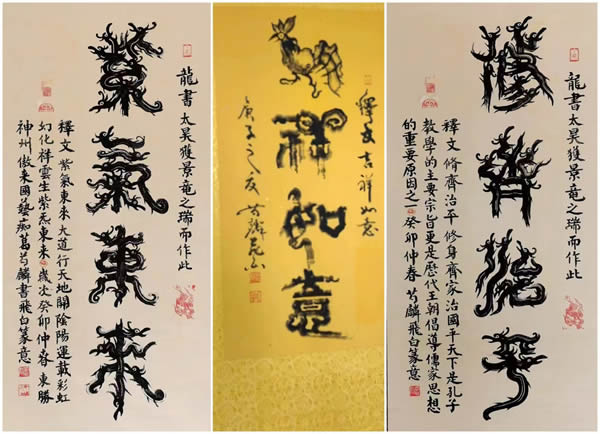 龍書太昊獲景竜之瑞而作此
紫氣東來
釋文 紫氣東來 大道行天地開陰陽運載彩虹
幻化祥雲生紫炁東来 歲次癸卯仲春 東勝
神州傲来國藝痴葛芍麟書飛白篆意
釋文吉祥如意
祥如意
庚子之
龍書太昊獲景竜之瑞而作此
脩齊治平
釋文 脩齊治平 修身齊家治國平天下是孔子
教學的主要宗旨更是歷代王朝倡導儒家思想
的重要原因之一 癸卯仲春 芍麟飛白篆意